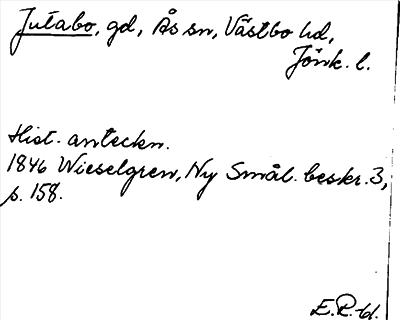 Jutabo, gd, Ås sn, Västbo hd,
Jönk. l.
Hist. anteckn.
1846 Wieselgren, Ny Smål. beskr. 3,
s. 158.